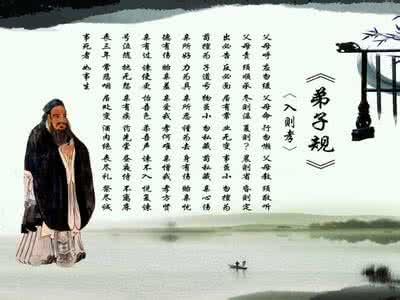 《弟子规》
〈入则孝〉
父母呼 应勿缓 父母命 行勿懒 父母教 须敬听
父母责 须顺承 冬则温 夏则? 晨则省 昏则定
出必告 反必面 居有常 业无变 事虽小 勿擅为
苟擅为 子道亏 物虽小 勿私藏 苟私藏 亲心伤
亲所好 力为具 亲所恶 谨为去 身有伤 贻亲忧
德有伤 贻亲羞 亲爱我 孝何难 亲憎我 孝方贤
亲有过 谏使更 怡吾色 柔吾声 谏不入 悦复谏
号泣随 挞无怨 亲有疾 药先尝 昼夜侍 不离床
丧三年 常悲咽 居处变 酒肉绝 丧尽礼 祭尽诚
事死者 如事生